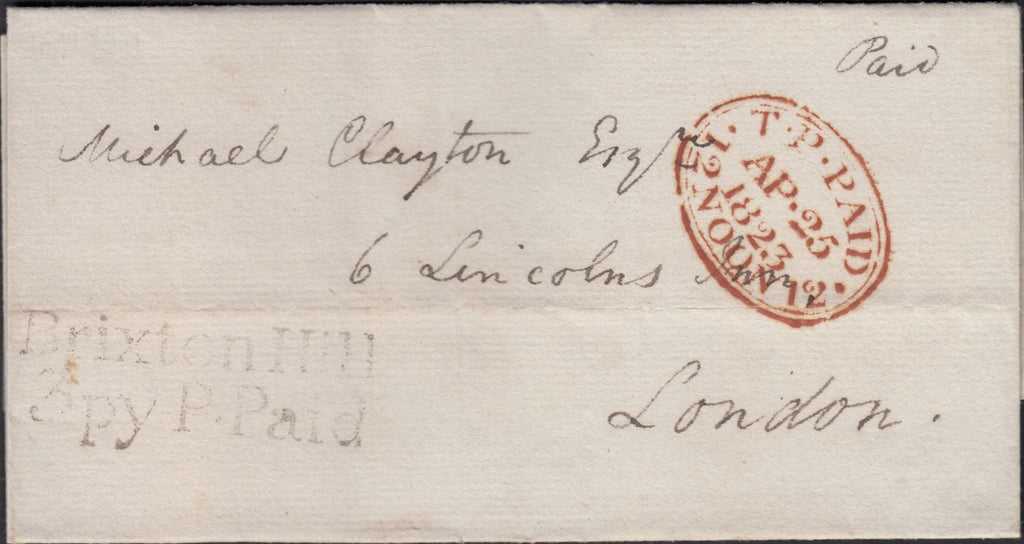 Paid
Michael Clayton Esqre
6 Lincolns Inn,
London.
T.P. PAID
12 NOON 12
AP. 25
1823
Brixton Hill
3py P. Paid